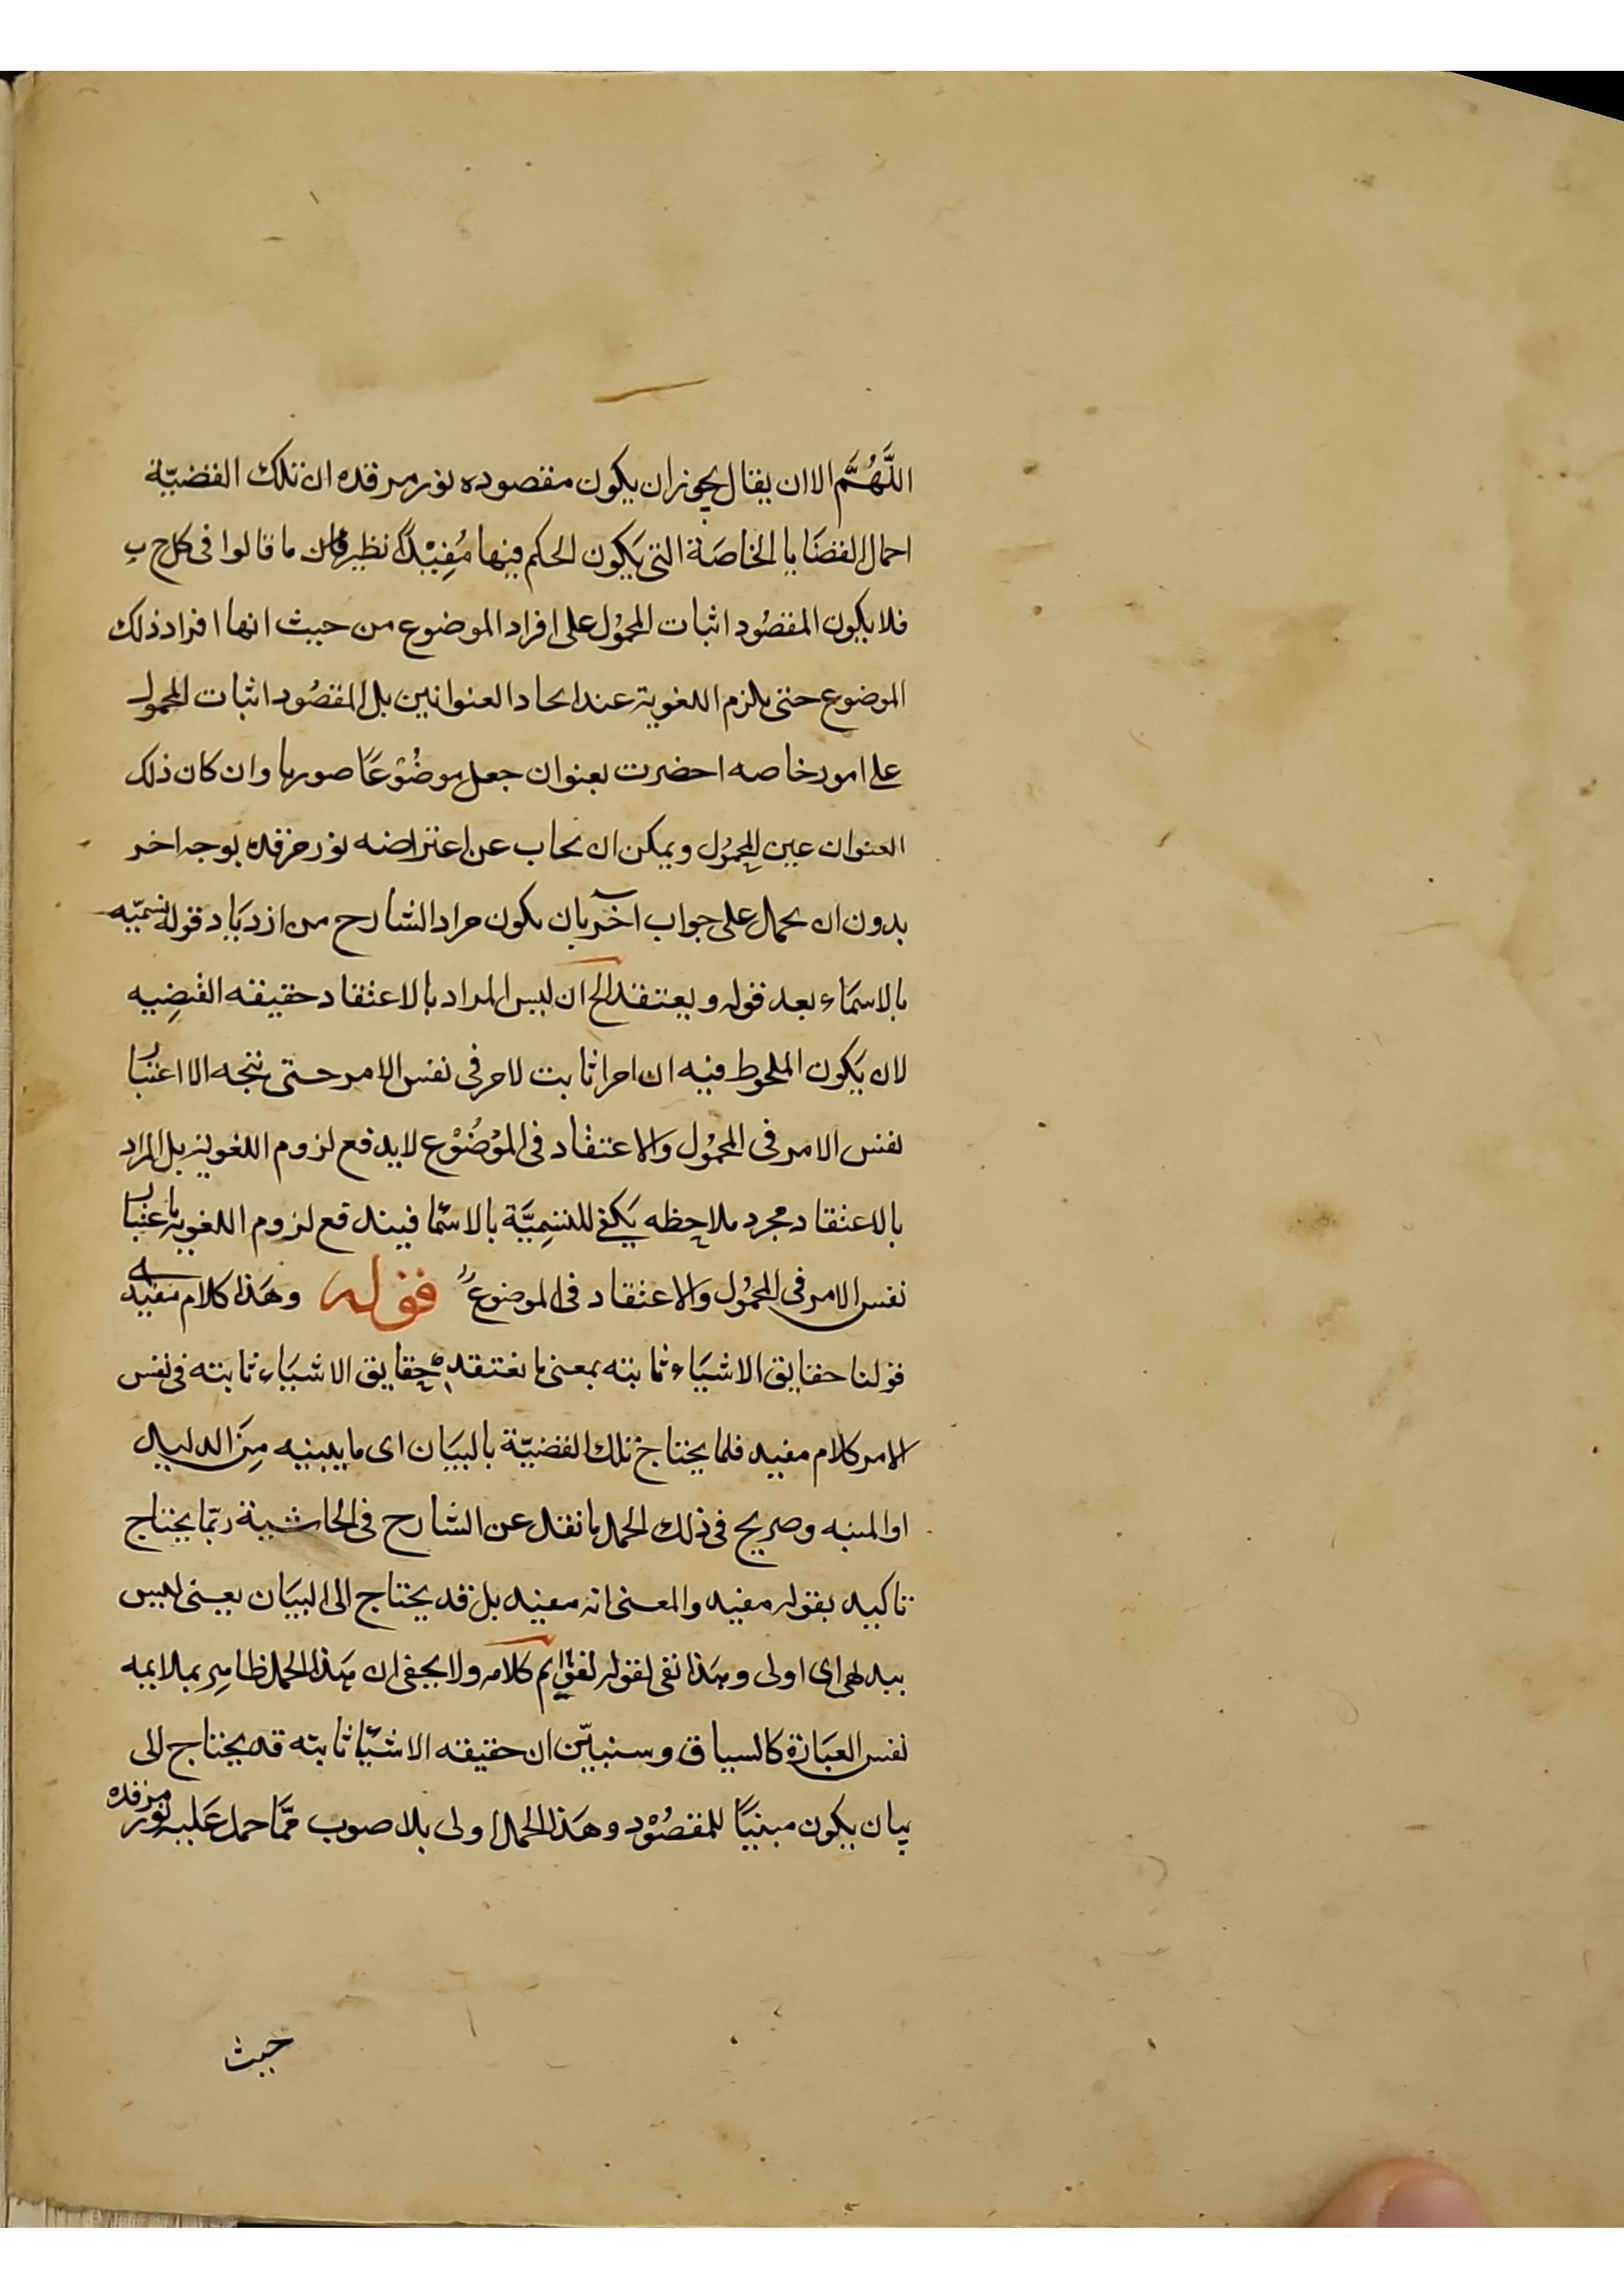 اللَّهُمَّ الا ان يقال يجوز ان يكون مقصوده نور مرقده ان تلك القضيّة
اجمال القضَايا الخاصَة التى يَكون الحكم فيها مُفِيْدًا نظير ما قالوا فى كل ج ب
فلا يكون المقصُود اثبات المحمُول على افراد الموضوع من حيث انها افراد ذلك
الموضوع حتى يلزم اللغوية عند اتحاد العنوانين بل المقصُود اثبات المحمول
على امور خاصه احضرت بعنوان جعل موضُوْعًا صوريا وان كان ذلك
العنوان عين المحمُول ويمكن ان يجاب عن اعتراضه نور مرقده بوجه اخر
بدون ان يحمل على جواب آخر بان يكون مراد الشارح من ازديَاد قوله نسميّه
بالاسمَاء بعد قوله ويعتقد الخ ان ليس المراد بالاعتقاد حقيقه القضِيه
لان يَكون الملحوظ فيه ان امرا ثابت لامر فى نفس الامر حتى يتجه الا اعتبار
نفس الامر فى المحمُول والاعتقاد فى الموْضُوْع لا يدفع لزوم اللغوية بل المراد
بالاعتقاد مجرد ملاحظه يَكفى للتسِميَّة بالاسمَا فيندفع لزوم اللغوية باعتبار
نفس الامر فى المحمُول والاعتقاد فى الموضوع قوله وهَذا كلام مفيد
قولنا حقايق الاشيَاء ثابته بمعنى ما نعتقده حقايق الاشيَاء ثابته فى نفس
الامر كلام مفيد فلما يحتاج تلك القضيّة بالبيَان اى ما يبينه مِنَ الدليل
او المنبه وصريح فى ذلك الحمل ما نقل عن الشارح فى الحاشية ربّما يحتاج
تاكيد بقوله مفيد والمعنى انه مفيد بل قد يحتاج الى البيَان يعنى ليس
بيد لهى اى اولى وهَذا نفى لقوله لغو اتم كلامه ولا يخفى ان هَذا الحمل ظاهِر بملايمه
نفس العبَارَة كالسياق وسنبيّن ان حقيقه الاشيَا ثابته قد يحتاج الى
بيان يكون مبنيًا للمقصُوْد وهَذا الحمل اولى بلا صوب ممَّا حمل عَليه نور مرقده
حيث